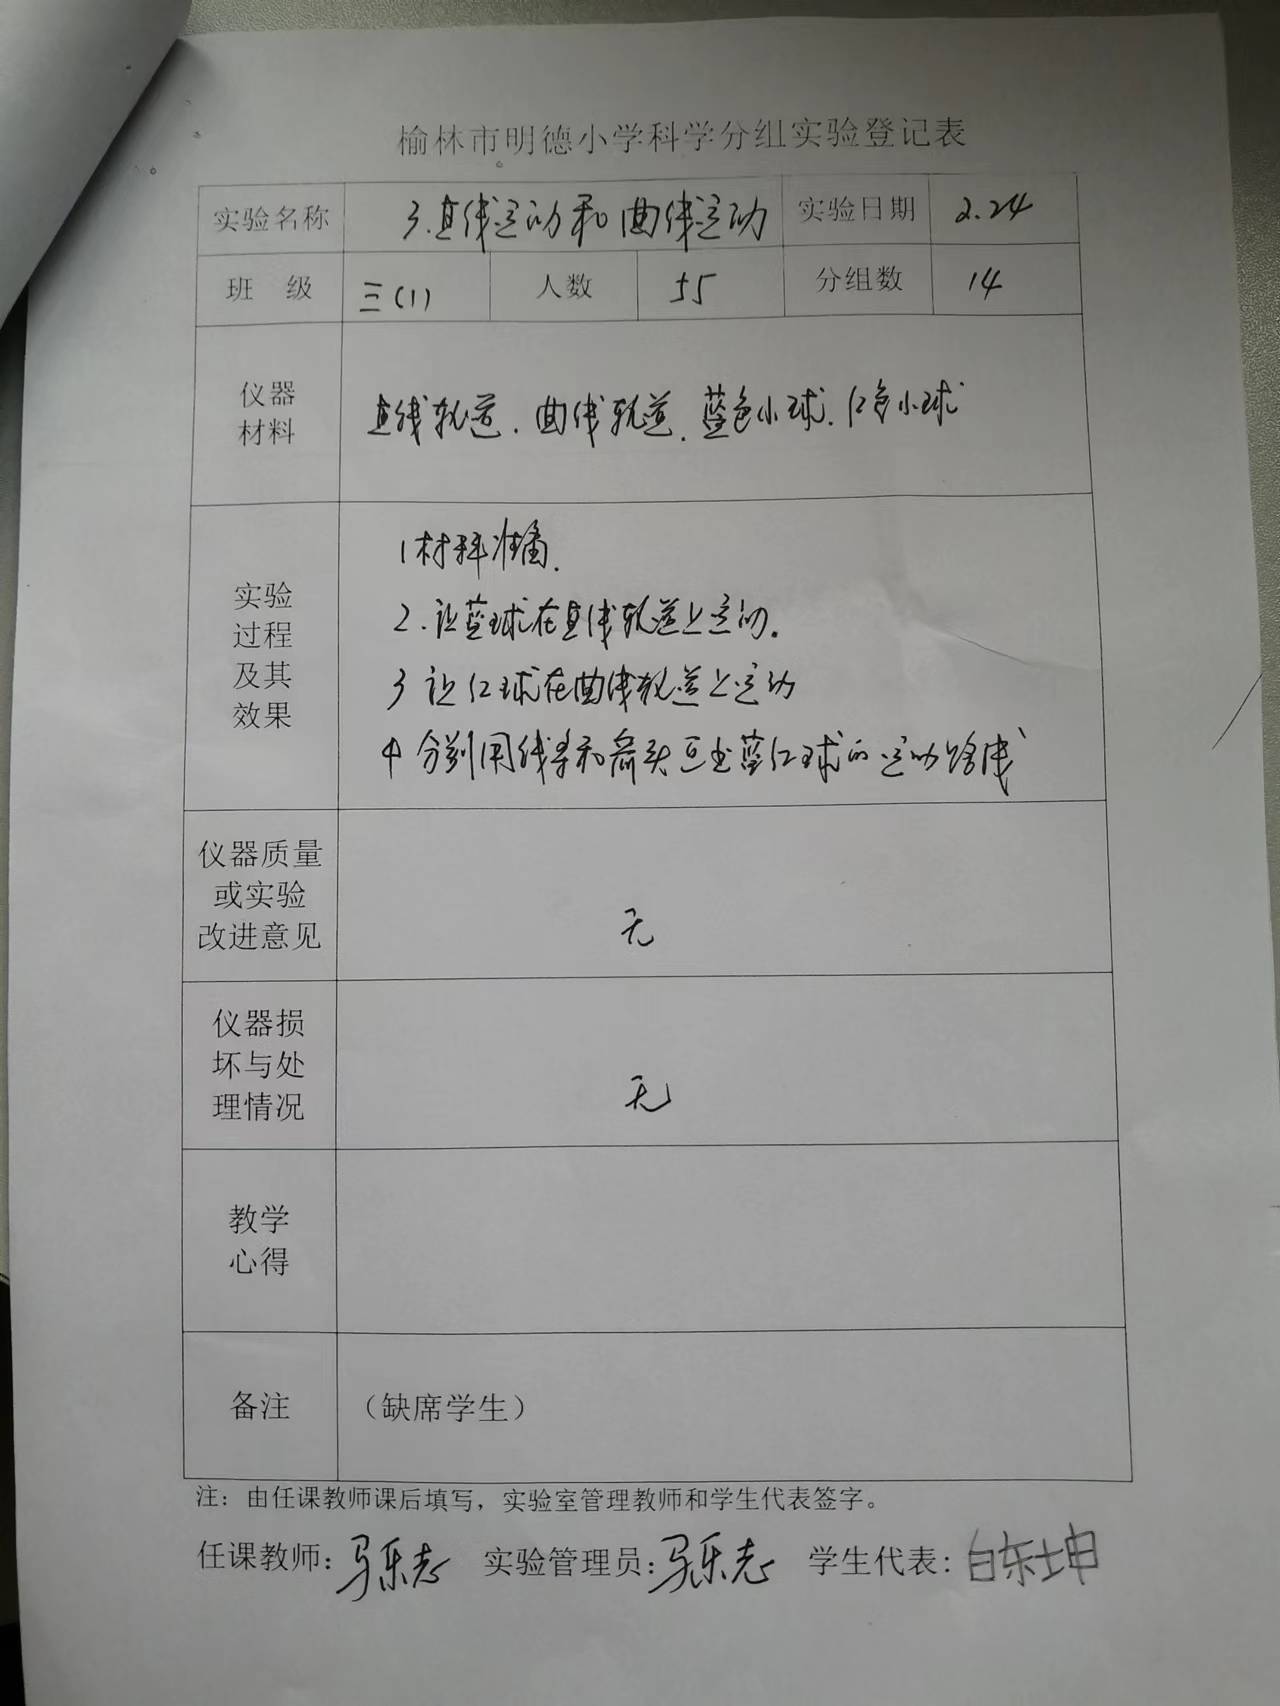 榆林市明德小学科学分组实验登记表
实验名称 3.直线运动和曲线运动 实验日期 2.24
班 级 三(1) 人数 55 分组数 14
仪器
材料
直线轨道.曲线轨道.蓝色小球.红色小球
实验
过程
及其
效果
1材料准备.
2.让蓝球在直线轨道上运动。
3 让红球在曲线轨道上运动
4 分别用线条和箭头画出蓝红球的运动路线
仪器质量
或实验
改进意见
无
仪器损
坏与处
理情况
无
教学
心得
备注 (缺席学生)
注：由任课教师课后填写，实验室管理教师和学生代表签字。
任课教师：马乐志 实验管理员：马乐志 学生代表：白东坤